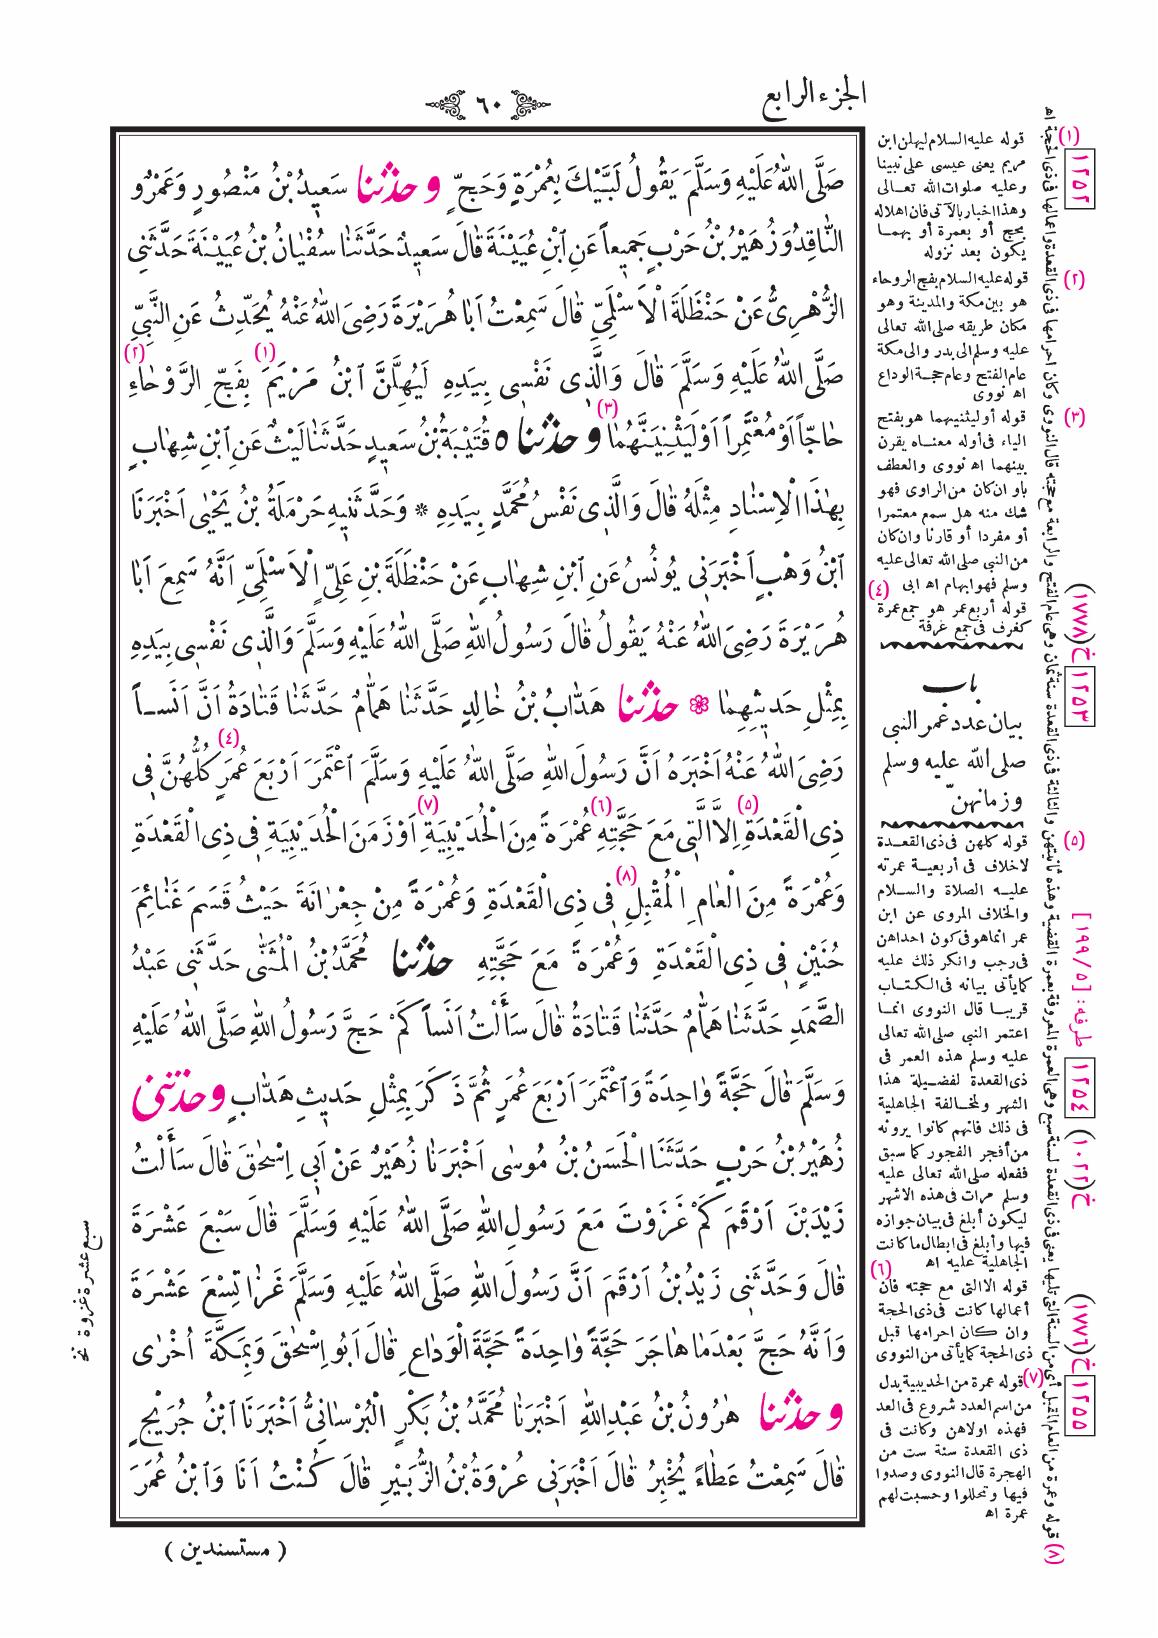 الجزء الرابع
٦٠
صَلَّى اللهُ عَلَيْهِ وَسَلَّمَ يَقُولُ لَبَّيْكَ بِعُمْرَةٍ وَحَجٍّ وحدثنا سَعِيدُ بْنُ مَنْصُورٍ وَعَمْرٌو
النَّاقِدُ وَزُهَيْرُ بْنُ حَرْبٍ جَمِيعاً عَنِ ابْنِ عُيَيْنَةَ قَالَ سَعِيدٌ حَدَّثَنَا سُفْيَانُ بْنُ عُيَيْنَةَ حَدَّثَنِي
الزُّهْرِيُّ عَنْ حَنْظَلَةَ الْأَسْلَمِيِّ قَالَ سَمِعْتُ أَبَا هُرَيْرَةَ رَضِيَ اللهُ عَنْهُ يُحَدِّثُ عَنِ النَّبِيِّ
صَلَّى اللهُ عَلَيْهِ وَسَلَّمَ قَالَ وَالَّذِي نَفْسِي بِيَدِهِ لَيُهِلَّنَّ ابْنُ مَرْيَمَ (١) بِفَجِّ الرَّوْحَاءِ (٢)
حَاجّاً أَوْ مُعْتَمِراً أَوْ لَيَثْنِيَنَّهُمَا (٣) وحدثنا ٥ قُتَيْبَةُ بْنُ سَعِيدٍ حَدَّثَنَا لَيْثٌ عَنِ ابْنِ شِهَابٍ
بِهٰذَا الْإِسْنَادِ مِثْلَهُ قَالَ وَالَّذِي نَفْسُ مُحَمَّدٍ بِيَدِهِ * وَحَدَّثَنِيهِ حَرْمَلَةُ بْنُ يَحْيَى أَخْبَرَنَا
ابْنُ وَهْبٍ أَخْبَرَنِي يُونُسُ عَنِ ابْنِ شِهَابٍ عَنْ حَنْظَلَةَ بْنِ عَلِيٍّ الْأَسْلَمِيِّ أَنَّهُ سَمِعَ أَبَا
هُرَيْرَةَ رَضِيَ اللهُ عَنْهُ يَقُولُ قَالَ رَسُولُ اللهِ صَلَّى اللهُ عَلَيْهِ وَسَلَّمَ وَالَّذِي نَفْسِي بِيَدِهِ
بِمِثْلِ حَدِيثِهِمَا ۞ حدثنا هَدَّابُ بْنُ خَالِدٍ حَدَّثَنَا هَمَّامٌ حَدَّثَنَا قَتَادَةُ أَنَّ أَنَساً
رَضِيَ اللهُ عَنْهُ أَخْبَرَهُ أَنَّ رَسُولَ اللهِ صَلَّى اللهُ عَلَيْهِ وَسَلَّمَ اعْتَمَرَ أَرْبَعَ عُمَرٍ (٤) كُلُّهُنَّ فِي
ذِي الْقَعْدَةِ (٥) إِلَّا الَّتِي مَعَ حَجَّتِهِ (٦) عُمْرَةً مِنَ الْحُدَيْبِيَةِ (٧) أَوْ زَمَنَ الْحُدَيْبِيَةِ فِي ذِي الْقَعْدَةِ
وَعُمْرَةً مِنَ الْعَامِ الْمُقْبِلِ (٨) فِي ذِي الْقَعْدَةِ وَعُمْرَةً مِنْ جِعْرَانَةَ حَيْثُ قَسَمَ غَنَائِمَ
حُنَيْنٍ فِي ذِي الْقَعْدَةِ وَعُمْرَةً مَعَ حَجَّتِهِ حدثنا مُحَمَّدُ بْنُ الْمُثَنَّى حَدَّثَنِي عَبْدُ
الصَّمَدِ حَدَّثَنَا هَمَّامٌ حَدَّثَنَا قَتَادَةُ قَالَ سَأَلْتُ أَنَساً كَمْ حَجَّ رَسُولُ اللهِ صَلَّى اللهُ عَلَيْهِ
وَسَلَّمَ قَالَ حَجَّةً وَاحِدَةً وَاعْتَمَرَ أَرْبَعَ عُمَرٍ ثُمَّ ذَكَرَ بِمِثْلِ حَدِيثِ هَدَّابٍ وحدثني
زُهَيْرُ بْنُ حَرْبٍ حَدَّثَنَا الْحَسَنُ بْنُ مُوسَى أَخْبَرَنَا زُهَيْرٌ عَنْ أَبِي إِسْحٰقَ قَالَ سَأَلْتُ
زَيْدَ بْنَ أَرْقَمَ كَمْ غَزَوْتَ مَعَ رَسُولِ اللهِ صَلَّى اللهُ عَلَيْهِ وَسَلَّمَ قَالَ سَبْعَ عَشْرَةَ
قَالَ وَحَدَّثَنِي زَيْدُ بْنُ أَرْقَمَ أَنَّ رَسُولَ اللهِ صَلَّى اللهُ عَلَيْهِ وَسَلَّمَ غَزَا تِسْعَ عَشْرَةَ
وَأَنَّهُ حَجَّ بَعْدَمَا هَاجَرَ حَجَّةً وَاحِدَةً حَجَّةَ الْوَدَاعِ قَالَ أَبُو إِسْحٰقَ وَبِمَكَّةَ أُخْرَى
وحدثنا هٰرُونُ بْنُ عَبْدِ اللهِ أَخْبَرَنَا مُحَمَّدُ بْنُ بَكْرٍ الْبُرْسَانِيُّ أَخْبَرَنَا ابْنُ جُرَيْجٍ
قَالَ سَمِعْتُ عَطَاءً يُخْبِرُ قَالَ أَخْبَرَنِي عُرْوَةُ بْنُ الزُّبَيْرِ قَالَ كُنْتُ أَنَا وَابْنُ عُمَرَ
( مستسندين )
سبع عشرة غزوة نخ
(١) قوله عليه السلام ليهلن ابن
مريم يعنى عيسى على نبينا
وعليه صلوات الله تعالى
وهذا اخبار بالآتى فان اهلاله
بحج أو بعمرة أو بهما
يكون بعد نزوله
(٢) قوله عليه السلام بفج الروحاء
هو بين مكة والمدينة وهو
مكان طريقه صلى الله تعالى
عليه وسلم الى بدر والى مكة
عام الفتح وعام حجة الوداع
اه نووى
(٣) قوله أو ليثنيهما هو بفتح
الياء فى أوله معناه يقرن
بينهما اه نووى والعطف
باو ان كان من الراوى فهو
شك منه هل سمع معتمرا
أو مفردا أو قارنا وان كان
من النبى صلى الله تعالى عليه
وسلم فهو ابهام اه ابى
(٤) قوله أربع عمر هو جمع عمرة
كغرف فى جمع غرفة
باب
بيان عدد عمر النبى
صلى الله عليه وسلم
وزمانهنّ
(٥) قوله كلهن فى ذى القعدة
لاخلاف فى أربعية عمرته
عليه الصلاة والسلام
والخلاف المروى عن ابن
عمر انما هو فى كون احداهن
فى رجب وانكر ذلك عليه
كما يأتى بيانه فى الكتاب
قريبا قال النووى انما
اعتمر النبى صلى الله تعالى
عليه وسلم هذه العمر فى
ذى القعدة لفضيلة هذا
الشهر ولمخالفة الجاهلية
فى ذلك فانهم كانوا يرونه
من أفجر الفجور كما سبق
ففعله صلى الله تعالى عليه
وسلم مرات فى هذه الاشهر
ليكون أبلغ فى بيان جوازه
فيها وأبلغ فى ابطال ما كانت
الجاهلية عليه اه
(٦) قوله الا التى مع حجته فان
أعمالها كانت فى ذى الحجة
وان كان احرامها قبل
ذى الحجة كما يأتى من النووى
(٧) قوله عمرة من الحديبية بدل
من اسم العدد شروع فى العد
فهذه اولاهن وكانت فى
ذى القعدة سنة ست من
الهجرة قال النووى وصدوا
فيها وتحللوا وحسبت لهم
عمرة اه
(٨) قوله وعمرة من العام المقبل أى من السنة التى تليها يعنى فى ذى القعدة لسنة سبع وهى العمرة المعروفة بعمرة القضية وهذه ثانيتهن والثالثة فى ذى القعدة سنة ثمان وهى عام الفتح والرابعة مع حجته قال النووى وكان احرامها فى ذى القعدة واعمالها فى ذى الحجة اه
١٢٥٢
١٢٥٣ خ (١٧٧٨)
١٢٥٤ طرفه: [ ١٩٩/٥ ]
خ (١٠٢٢)
١٢٥٥ خ (١٧٧٦)